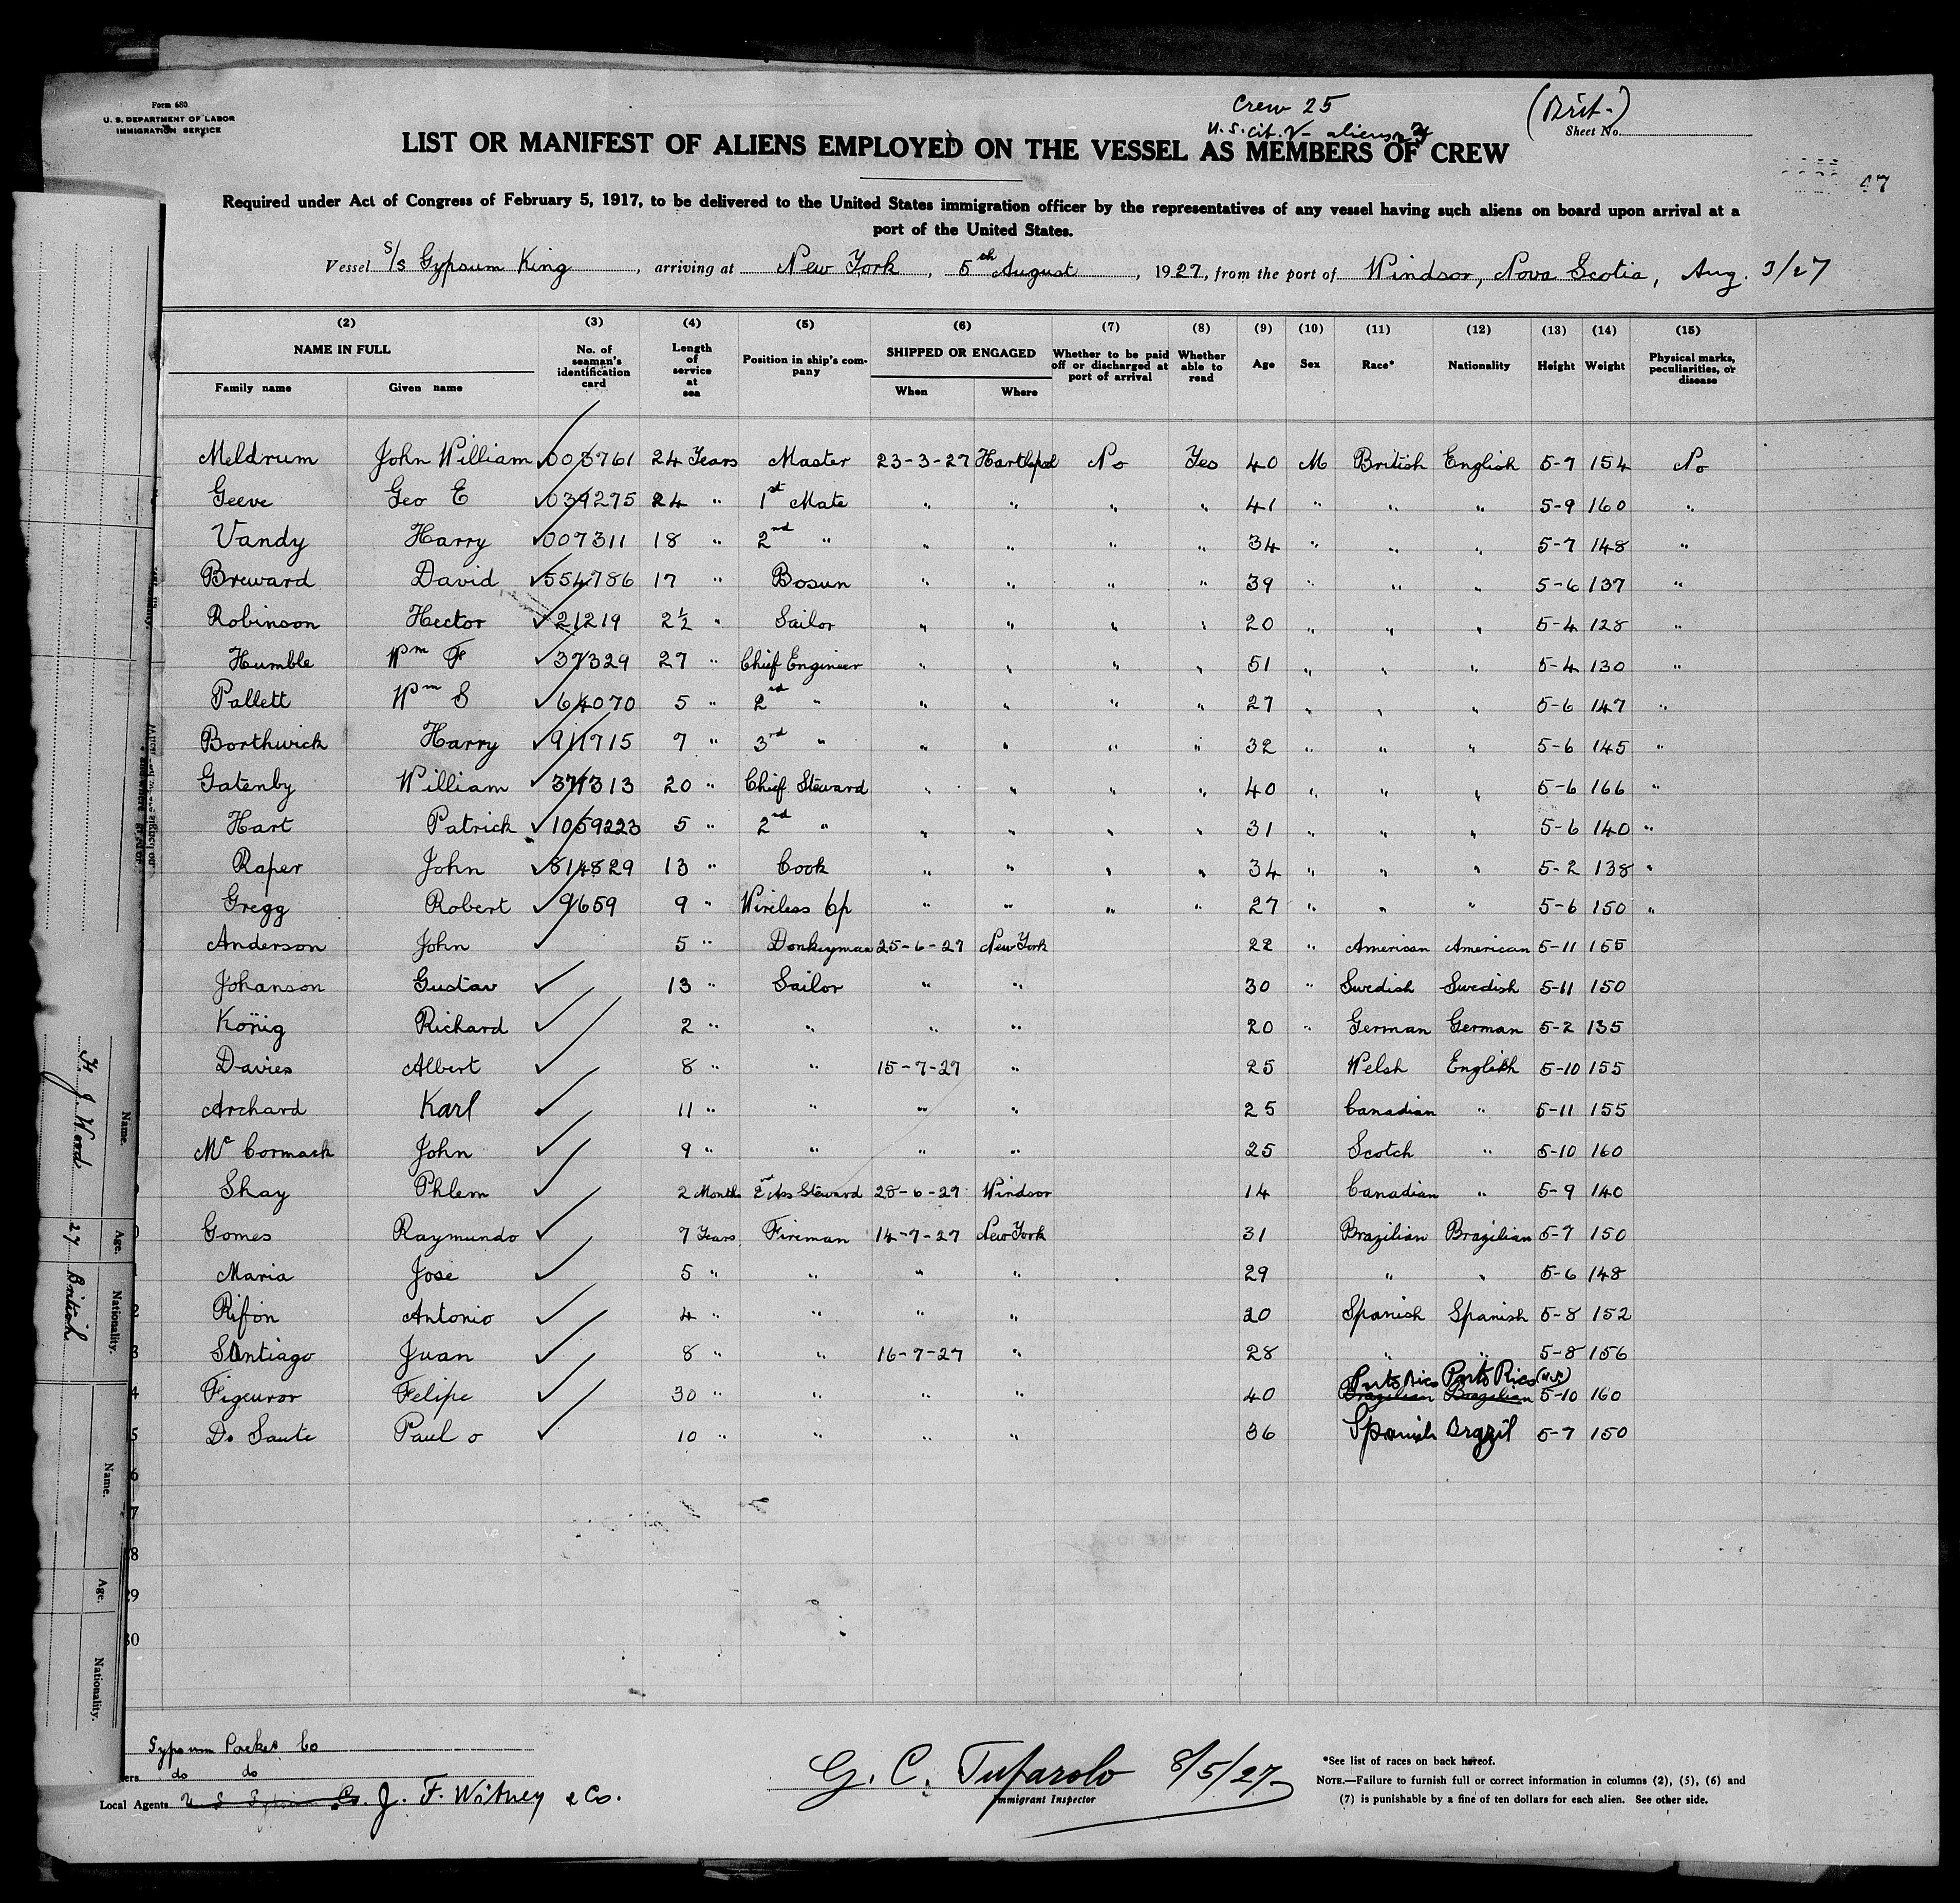 Form 680
U. S. DEPARTMENT OF LABOR
IMMIGRATION SERVICE
Crew 25
(Brit-)
U.S. cit. 2 - aliens 23
Sheet No.
LIST OR MANIFEST OF ALIENS EMPLOYED ON THE VESSEL AS MEMBERS OF CREW
Required under Act of Congress of February 5, 1917, to be delivered to the United States immigration officer by the representatives of any vessel having such aliens on board upon arrival at a
port of the United States.
Vessel S/s Gypsum King, arriving at New York, 5th August, 1927, from the port of Windsor, Nova Scotia, Aug. 3/27
(2) (3) (4) (5) (6) (7) (8) (9) (10) (11) (12) (13) (14) (15)
NAME IN FULL No. of seaman's identification card Length of service at sea Position in ship's company SHIPPED OR ENGAGED Whether to be paid off or discharged at port of arrival Whether able to read Age Sex Race* Nationality Height Weight Physical marks, peculiarities, or disease
Family name Given name When Where
Meldrum John William 008761 24 Years Master 23-3-27 Hartlepol No Yes 40 M British English 5-7 154 No
Geeve Geo E 039275 24 " 1st Mate " " " " 41 " " " 5-9 160 "
Vandy Harry 007311 18 " 2nd " " " " " 34 " " " 5-7 148 "
Breward David 554786 17 " Bosun " " " " 39 " " " 5-6 137 "
Robinson Hector 21219 2½ " Sailor " " " " 20 " " " 5-4 128 "
Humble Wm F 37329 27 " Chief Engineer " " " " 51 " " " 5-4 130 "
Pallett Wm S 64070 5 " 2nd " " " " " 27 " " " 5-6 147 "
Borthwick Harry 911715 7 " 3rd " " " " " 32 " " " 5-6 145 "
Gatenby William 371313 20 " Chief Steward " " " " 40 " " " 5-6 166 "
Hart Patrick 1059223 5 " 2nd " " " " " 31 " " " 5-6 140 "
Raper John 814829 13 " Cook " " " " 34 " " " 5-2 138 "
Gregg Robert 9659 9 " Wireless Op " " " " 27 " " " 5-6 150 "
Anderson John 5 " Donkeyman 25-6-27 New York 22 " American American 5-11 165
Johanson Gustav 13 " Sailor " " 30 " Swedish Swedish 5-11 150
König Richard 2 " " " " 20 " German German 5-2 135
Davies Albert 8 " " 15-7-27 " 25 Welsh English 5-10 155
Archard Karl 11 " " " " 25 Canadian " 5-11 155
Mc Cormack John 9 " " " " 25 Scotch " 5-10 160
Shay Phlem 2 Months 2nd Ass Steward 28-6-27 Windsor 14 Canadian " 5-9 140
Gomes Raymundo 7 Years Fireman 14-7-27 New York 31 Brazilian Brazilian 5-7 150
Maria Jose 5 " " " " 29 " " 5-6 148
Rifon Antonio 4 " " " " 20 Spanish Spanish 5-8 152
Santiago Juan 8 " " 16-7-27 " 28 " " 5-8 156
Porto Rico Porto Rico (U.S.)
Figeuror Felipe 30 " " " " 40 Brazilian Brazilian 5-10 160
Do Saute Paul o 10 " " " " 36 Spanish Brazil 5-7 150
8
29
30
Name. H. J. Ward
Age. 27
Nationality. British
Name.
Age.
Nationality.
Gypsum Packet Co
do do
Local Agents U S Gypsum Co. J. F. Witney & Co.
G. C. Tufarolo 8/5/27
Immigrant Inspector
*See list of races on back hereof.
NOTE.—Failure to furnish full or correct information in columns (2), (5), (6) and
(7) is punishable by a fine of ten dollars for each alien. See other side.